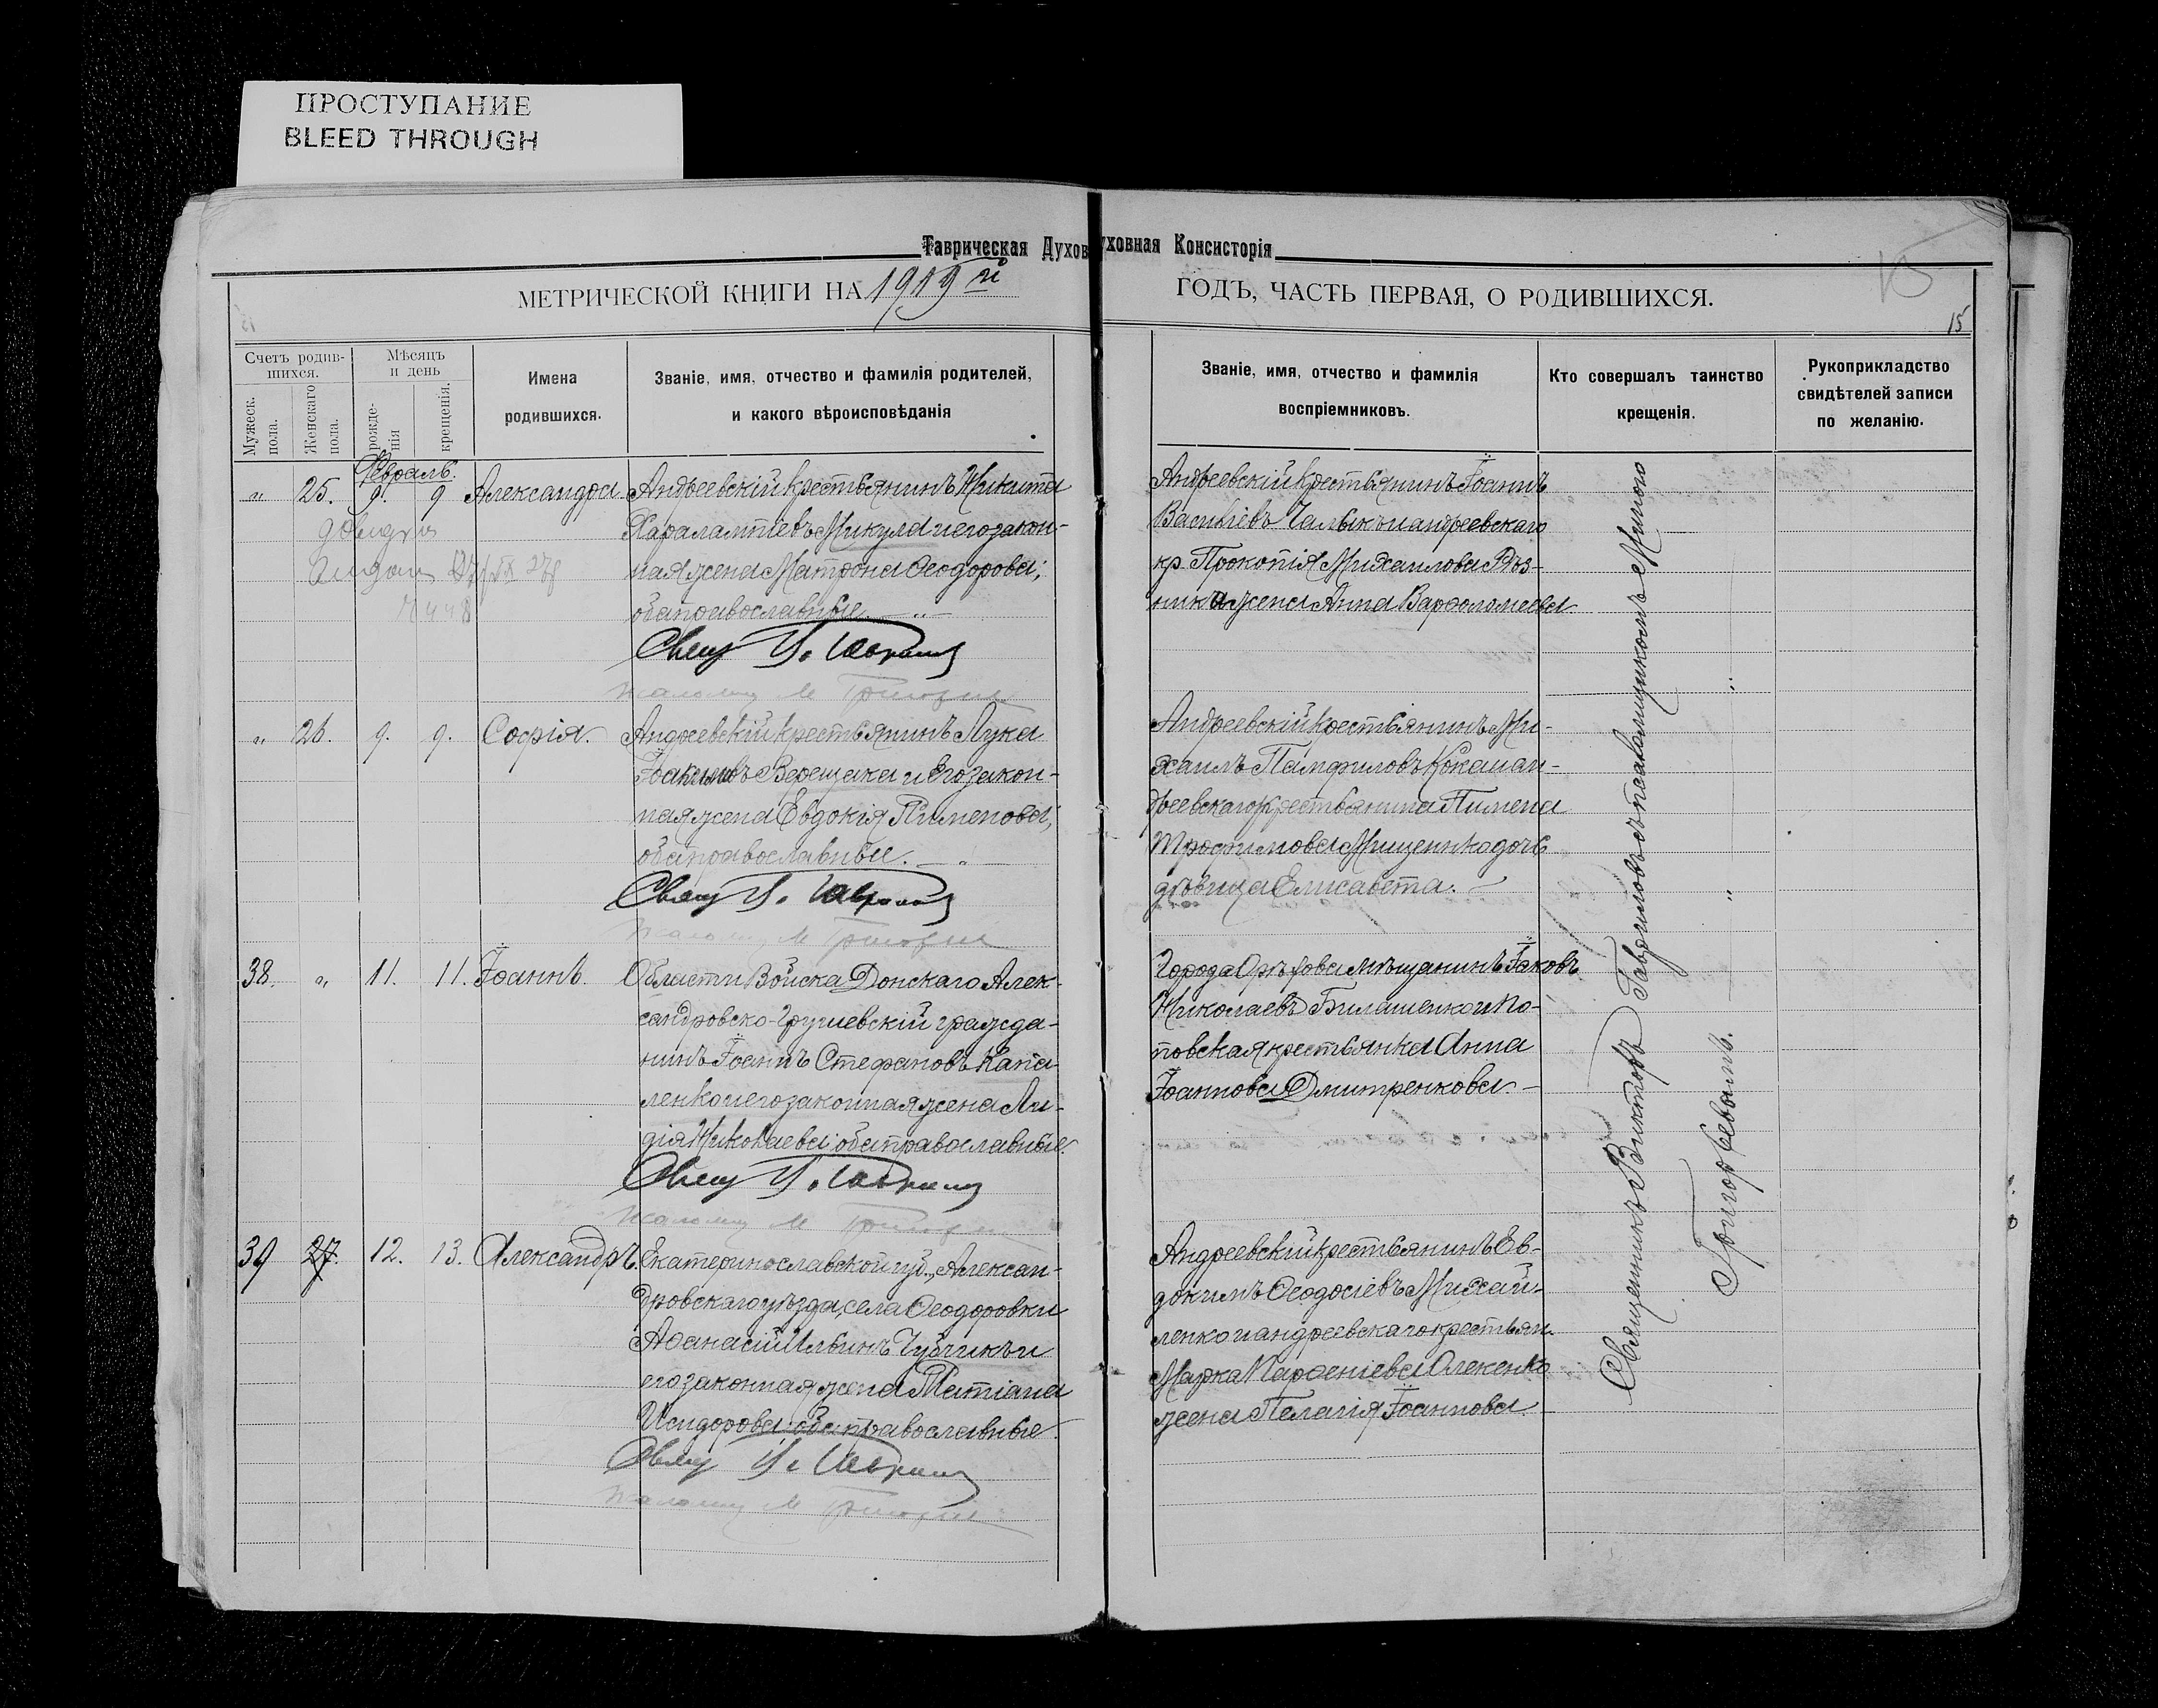 ПРОСТУПАНИЕ
BLEED THROUGH
Таврическая Духов
уховная Консисторія
МЕТРИЧЕСКОЙ КНИГИ НА 1919 й
ГОДЪ, ЧАСТЬ ПЕРВАЯ, О РОДИВШИХСЯ.
15
15
Счетъ родив-
шихся.
Мужеск.
пола.
Женскаго
пола.
Мѣсяцъ
и день
рожде-
нія
крещенія.
Имена
родившихся.
Званіе, имя, отчество и фамилія родителей,
и какого вѣроисповѣданія
Званіе, имя, отчество и фамилія
воспріемниковъ.
Кто совершалъ таинство
крещенія.
Рукоприкладство
свидѣтелей записи
по желанію.
Февраль.
" 25. 9. 9 Александра
Андреевскій крестьянинъ Никита
Харалампіевъ Микула и его закон-
ная жена Матрона Ѳеодорова;
оба православные. — " —
Свящ
Андреевскій крестьянинъ Іоаннъ
Васильевъ Чалыкъ и андреевскаго
кр. Прокопія Михаилова Рѣз-
ника жена Анна Варѳоломеева
" 26. 9. 9. Софія.
Андреевскій крестьянинъ Лука
Іоакимовъ Верещака и Его закон-
ная жена Евдокія Пименова,
оба православные. — " —
Свящ
Андреевскій крестьянинъ Ми-
хаилъ Памфиловъ Кока и ан-
дреевскаго крестьянина Пимена
Трофимова Мищенка дочь
дѣвица Елисавета.
38. " 11. 11. Іоаннъ.
Области Войска Донскаго Алек-
сандровско-Грушевскій гражда-
нинъ Іоаннъ Стефановъ Капа-
ленко и его законная жена Ли-
дія Николаева; оба православные.
Свящ
Города Орѣхова мѣщанинъ Іаковъ
Николаевъ Билашенко и по-
повская крестьянка Анна
Іоаннова Дмитренкова. —
39 27. 12. 13. Александръ.
Екатеринославской губ., Алексан-
дровскаго уѣзда, села Ѳеодоровки
Аѳанасій Ильинъ Чубчикъ и
его законная жена Татіана
Исидорова; оба православные.
Свящ
Андреевскій крестьянинъ Ев-
докимъ Ѳеодосіевъ Михай-
ленко и андреевскаго крестьян.
Марка Парѳеніева Олекенко
жена Пелагія Іоаннова.
Священникъ Викторъ Гавриловъ съ псаломщикомъ